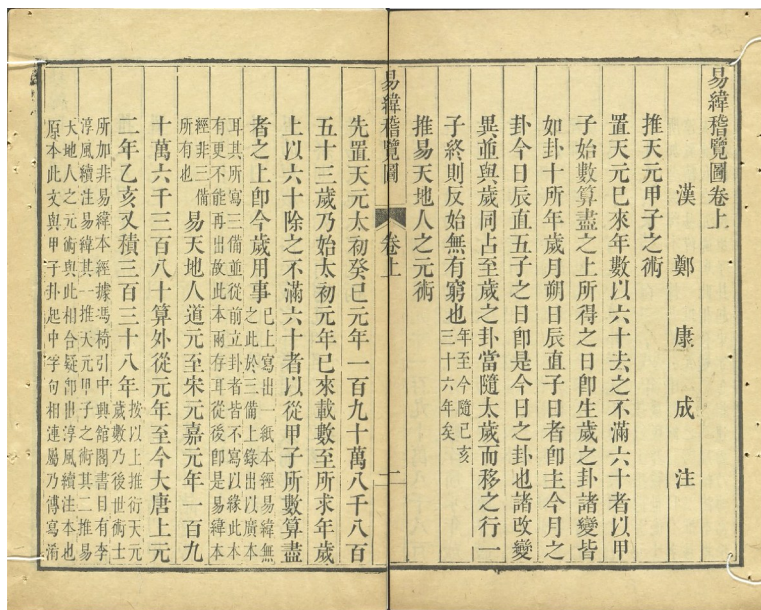 易緯稽覽圖卷上
漢鄭康成注
推天元甲子之術
置天元已來年數以六十去之不滿六十者以甲
子始數算盡之上所得之日卽生歲之卦諸變皆
如卦十所年歲月朔日辰直子日者卽主今月之
卦今日辰直五子之日卽是今日之卦也諸改變
異並與歲同占至歲之卦當隨太歲而移之行一
子終則反始無有窮也年至今隨己亥
三十六年矣
推易天地人之元術
易緯稽覽圖
卷上
二
先置天元太初癸巳元年一百九十萬八千八百
五十三歲乃始太初元年已來載數至所求年歲
上以六十除之不滿六十者以從甲子所數算盡
者之上卽今歲用事已上寫出一紙本經易緯無
之此於三備上錄出以廣本
耳其所寫三備並從前立卦者皆不寫以緣此本
有更不能再出故此本兩存耳從後卽是易緯本
經非三備
所有也
易天地人道元至宋元嘉元年一百九
十萬六千三百八十算外從元年至今大唐上元
二年乙亥又積三百三十八年按以上推衍天元
歲數乃後世術士
所加非易緯本經據馮椅引中興館閣書目有李
淳風續注易緯其一推天元甲子之術其二推易
天地人之元術與此相合疑卽出淳風續注本也
原本此文與甲子卦起中孚句相連屬乃傳寫淆